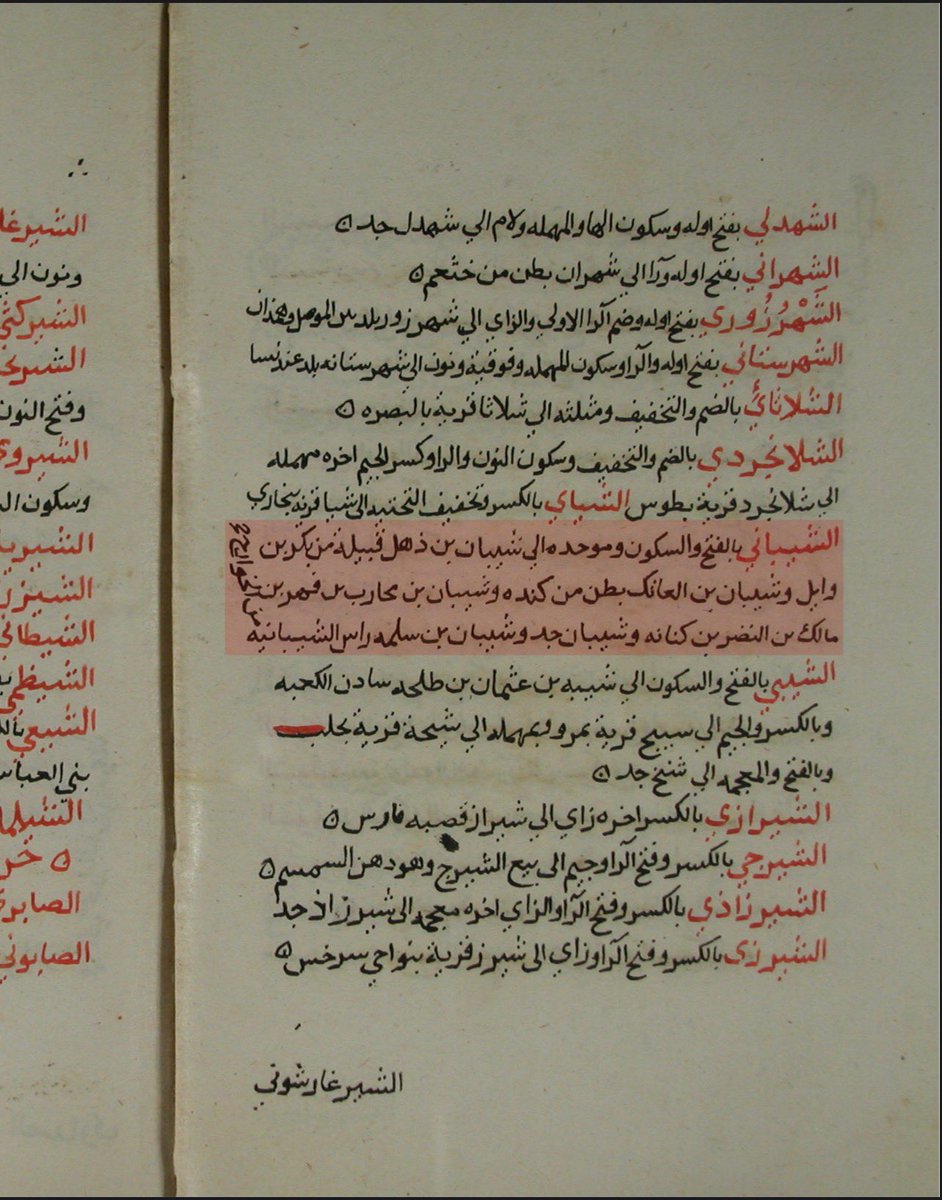 الشهدلي بفتح اوله وسكون الها والمهمله ولام الي شهدل جد ه
الشهراني بفتح اوله ورآ الي شهران بطن من خثعم ه
الشَّهْرُزُوري بفتح اوله وضم الرا الاولي والزاي الي شهرزور بلد بين الموصل وهمذان
الشهرستاني بفتح اوله والرا وسكون المهمله وفوقية ونون الى شهرستانه بلد عند نسا
الشلاثائي بالضم والتخفيف ومثلثه الي شلاثا قرية بالبصره ه
الشلانجردي بالضم والتخفيف وسكون النون والرا وكسر الجيم اخره مهمله
الي شلانجرد قرية بطوس الشياي بالكسر وتخفيف التحتيه الى شيا قرية ببخاري
الشيباني بالفتح والسكون وموحده الي شيبان بن ذهل قبيلة من بكر بن
وايل وشيبان بن العاتك بطن من كنده وشيبان بن محارب بن فهر بن
مالك بن النضر بن كنانه وشيبان جد وشيبان بن سلمه راس الشيبانيه
الشيبي بالفتح والسكون الي شيبه بن عثمان بن طلحه سادن الكعبه
وبالكسر والجيم الي سيج قرية بمرو وبمهمله الي شيحة قرية بحلب
وبالفتح والمعجمه الي شيخ جد ه
الشيرازي بالكسر اخره زاي الي شيراز قصبه فارس ه
الشيرجي بالكسر وفتح الرا وجيم الى بيع الشيرج وهو دهن السمسم ه
الشيرزاذي بالكسر وفتح الرآ والزاي اخره معجمه الى شيرزاذ جد
الشيرزي بالكسر وفتح الرآ وزاي الى شيرز قرية بنواحي سرخس ه
الشيرغاوشوني
الشيرغا
ونون الي
الشيركثي
الشيرنخ
وفتح النون
الشيروي
وسكون ال
الشيريا
الشيزر
الشيطاني
الشيظمي
الشيعي بالك
بني العباس
الشيلما
ه حر
الصابري
الصابوني